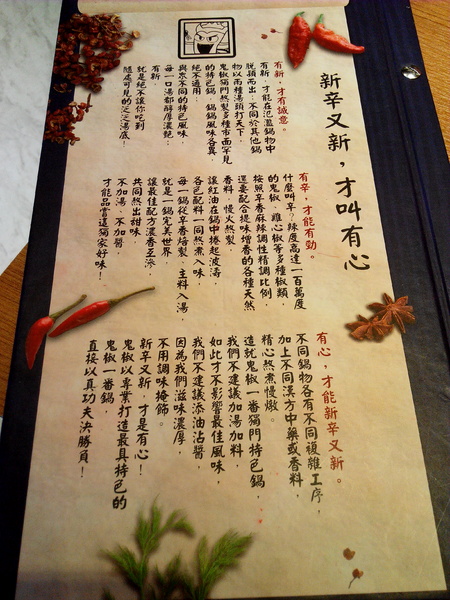 新辛又新，才叫有心
有新，才有誠意。
有新，才能在氾濫鍋物中
脫穎而出；不同於其他鍋
物以兩種湯頭打天下，
鬼椒獨門熬製多種市面罕見
的特色鍋，鍋鍋風味各異，
絕不通用，
與眾不同的特色風味，
每一口湯都醇厚濃郁！
有新，
就是絕不讓你吃到
隨處可見的泛泛湯底！
有辛，才能有勁。
什麼叫辛？辣度高達一百萬度
的鬼椒、雞心椒等多種椒類，
按照辛香麻辣調性精調比例，
還要配合提味增香的各種天然
香料，慢火熬製，
讓紅油在鍋中捲起波濤，
各色配料一同熬煮入味，
每一鍋從辛香焙製、主料入湯，
就是一鍋完美世界，
讓最佳配方濃香至滲，
共同熬出甜味，
不加湯、不加醬，
才能品嘗這獨家好味！
有心，才能新辛又新。
不同鍋物各有不同複雜工序，
加上不同漢方中藥或香料，
精心熬煮慢燉。
造就鬼椒一番獨門特色鍋，
我們不建議加湯加料，
如此才不影響最佳風味，
我們不建議添油沾醬，
因為我們滋味濃厚，
不用調味掩飾。
新辛又新，才是有心！
鬼椒以專業打造最具特色的
鬼椒一番鍋，
直接以真功夫決勝負！